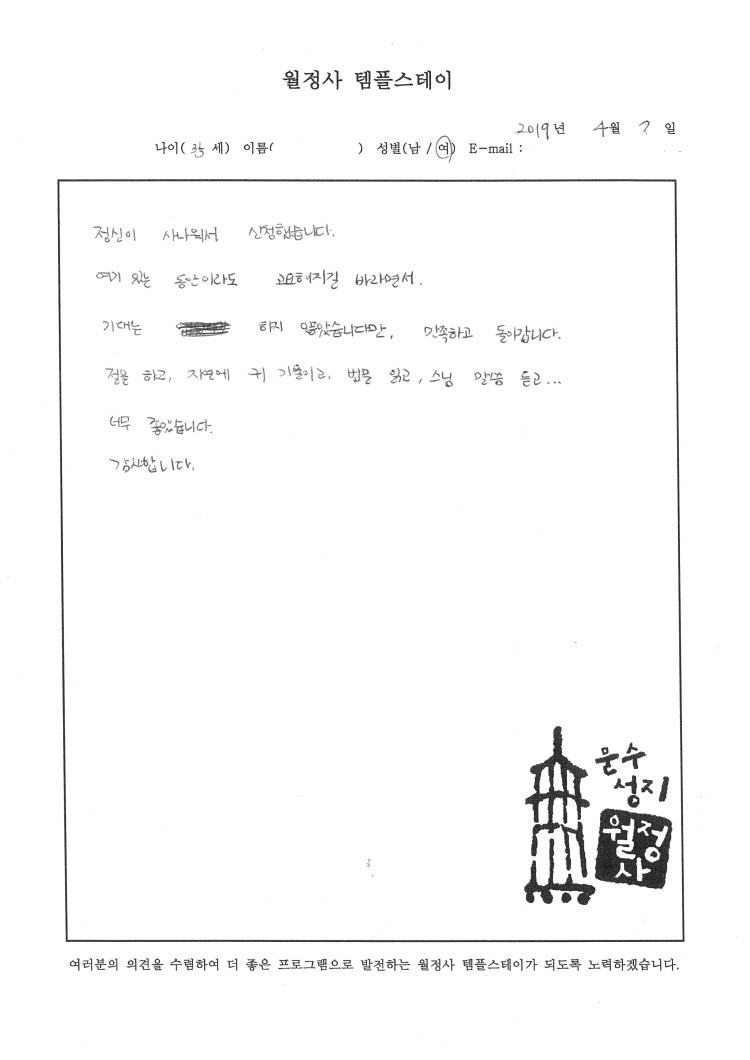 월정사 템플스테이
2019년 4월 7일
나이( 세) 이름( ) 성별(남 / 여) E-mail :
정신이 사나워서 신청했습니다.
여기 있는 동안이라도 고요해지길 바라면서.
기대는 하지 않았습니다만, 만족하고 돌아갑니다.
절을 하고, 자연에 귀 기울이고, 법문 읽고, 스님 말씀 듣고...
너무 좋았습니다.
감사합니다.
문수
성지
월정
사
여러분의 의견을 수렴하여 더 좋은 프로그램으로 발전하는 월정사 템플스테이가 되도록 노력하겠습니다.